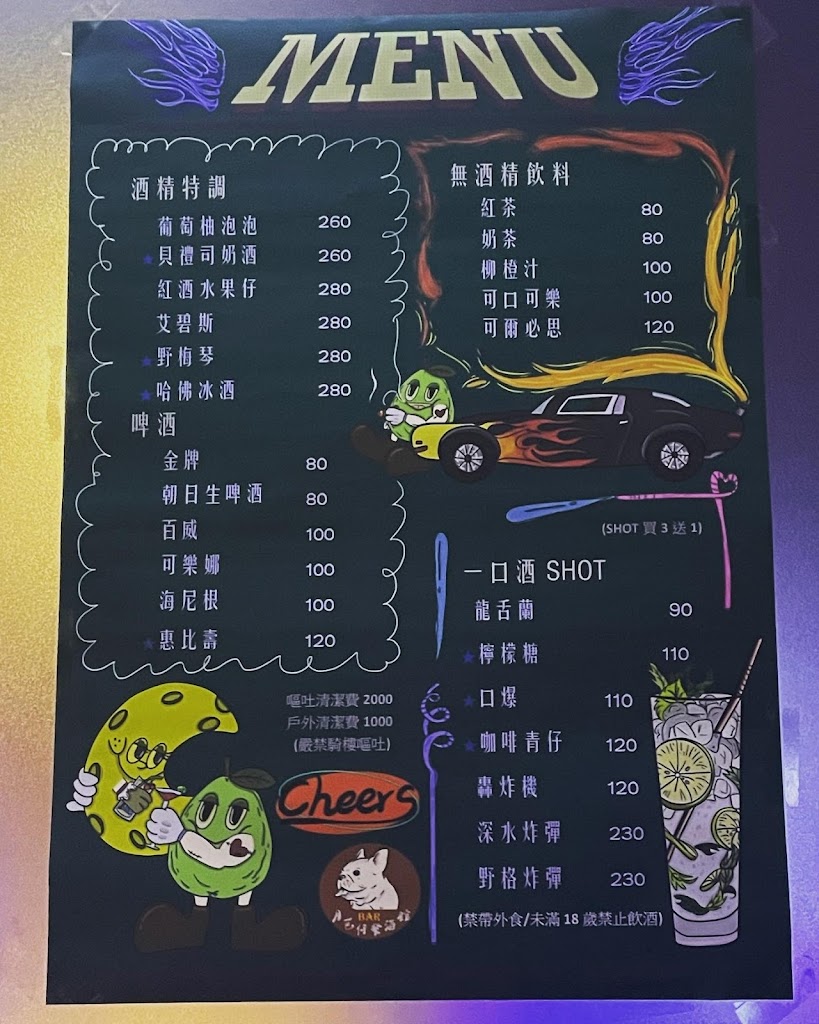 MENU
酒精特調
葡萄柚泡泡 260
★貝禮司奶酒 260
紅酒水果仔 280
艾碧斯 280
★野梅琴 280
★哈佛冰酒 280
啤酒
金牌 80
朝日生啤酒 80
百威 100
可樂娜 100
海尼根 100
★惠比壽 120
嘔吐清潔費 2000
戶外清潔費 1000
(嚴禁騎樓嘔吐)
Cheers
BAR
無酒精飲料
紅茶 80
奶茶 80
柳橙汁 100
可口可樂 100
可爾必思 120
(SHOT 買 3 送 1)
一口酒 SHOT
龍舌蘭 90
★檸檬糖 110
★口爆 110
★咖啡青仔 120
轟炸機 120
深水炸彈 230
野格炸彈 230
(禁帶外食/未滿 18 歲禁止飲酒)